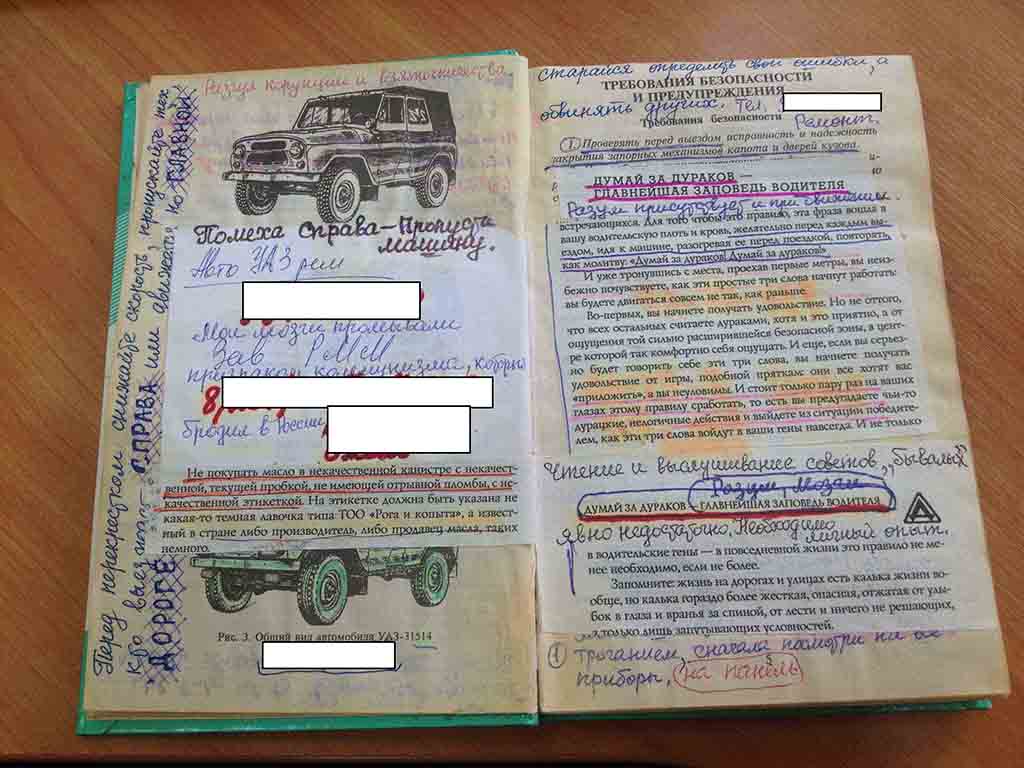 Разгул корупции и взяточничества
Перед перекрестком снижайте скорость, пропускайте тех
кто выезжает СПРАВА или движется по ГЛАВНОЙ
ДОРОГЕ
Помеха Справа – Пропусти
машину.
Авто УАЗ рем
"Мои мозги промывали
Зав РММ
призраком коммунизма, который
бродил в России
Не покупать масло в некачественной канистре с некачест-
венной, текущей пробкой, не имеющей отрывной пломбы, с не-
качественной этикеткой. На этикетке должна быть указана не
какая-то темная лавочка типа ТОО «Рога и копыта», а извест-
ный в стране либо производитель, либо продавец масла, таких
немного.
Рис. 3. Общий вид автомобиля УАЗ-31514
старайся определить свои ошибки, а
ТРЕБОВАНИЯ БЕЗОПАСНОСТИ
И ПРЕДУПРЕЖДЕНИЯ
обвинять других. Тел.
Требования безопасности
Ремонт.
1. Проверять перед выездом исправность и надежность
закрытия запорных механизмов капота и дверей кузова.
ДУМАЙ ЗА ДУРАКОВ —
ГЛАВНЕЙШАЯ ЗАПОВЕДЬ ВОДИТЕЛЯ
Разум присутствует и при движении.
встречающихся. Для того чтобы это правило, эта фраза вошла в
вашу водительскую плоть и кровь, желательно перед каждым вы-
ездом, идя к машине, разогревая ее перед поездкой, повторять,
как молитву: «Думай за дураков! Думай за дураков!»
И уже тронувшись с места, проехав первые метры, вы неиз-
бежно почувствуете, как эти простые три слова начнут работать:
вы будете двигаться совсем не так, как раньше.
Во-первых, вы начнете получать удовольствие. Но не оттого,
что всех остальных считаете дураками, хотя и это приятно, а от
ощущения той сильно расширившейся безопасной зоны, в цент-
ре которой так комфортно себя ощущать. И еще, если вы серьез-
но будет говорить себе эти три слова, вы начнете получать
удовольствие от игры, подобной пряткам: они все хотят вас
«приложить», а вы неуловимы. И стоит только пару раз на ваших
глазах этому правилу сработать, то есть вы предугадаете чьи-то
дурацкие, нелогичные действия и выйдете из ситуации победите-
лем, как эти три слова войдут в ваши гены навсегда. И не только
Чтение и выслушивание советов „бывалых
Разум
ДУМАЙ ЗА ДУРАКОВ — ГЛАВНЕЙШАЯ ЗАПОВЕДЬ ВОДИТЕЛЯ
явно недостатано. Необходимо
личный опыт.
в водительские гены — в повседневной жизни это правило не ме-
нее необходимо, если не более.
Запомните: жизнь на дорогах и улицах есть калька жизни во-
обще, но калька гораздо более жесткая, опасная, отжатая от улы-
бок в глаза и вранья за спиной, от лести и ничего не решающих,
а только лишь запутывающих условностей.
1 троганием, сначала посмотри на все
приборы, (на панель)